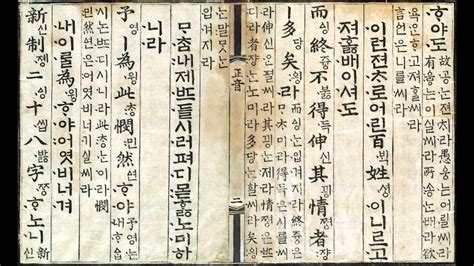 ᄒᆞ야도 故공ᄂᆞᆫ젼ᄎᆡ라愚ᅌᅮᆼ는어릴씨라
有ᅌᅮᇢ는이실씨라所송ᄂᆞᆫ배라欲
욕ᄋᆞᆫᄒᆞ고져ᄒᆞᆯ씨라
言ᅌᅥᆫ은니를씨라
이런젼ᄎᆞ로어린百ᄇᆡᆨ姓셔ᇰ이니르고
져호ᇙ배이셔도
而ᅀᅵᆼ終쥬ᇰ不부ᇙ得득伸신其끵情쪄ᇰ者쟝ㅣ
多당矣ᅌᅴᆼ라 而ᅀᅵᆼ는입겨지라終쥬ᇰ은
ᄆᆞᄎᆞ미라得득은시를씨라
伸신은펼씨라其끵는제라情쪄ᇰ은ᄠᅳ
디라者쟝는노미라多당ᄂᆞᆫ할씨라矣ᅌᅴᆼ
는말ᄆᆞᆺᄂᆞᆫ
입겨지라
正音
二
ᄆᆞᄎᆞᆷ내제ᄠᅳ들시러펴디몯ᄒᆞᇙ노미하
니라
予영ㅣ爲윙此ᄎᆞᆼ憫민然ᅀᅧᆫᄒᆞ야 予영는내ᄒᆞᅀᆞᆸ
시논ᄠᅳ디시니라此ᄎᆞᆼᄂᆞᆫ이라憫
민然ᅀᅧᆫ은어엿비너기실씨라
내이ᄅᆞᆯ爲윙ᄒᆞ야어엿비너겨
新신制젱二ᅀᅵᆼ十씹八바ᇙ字ᄍᆞᆼᄒᆞ노니 新신